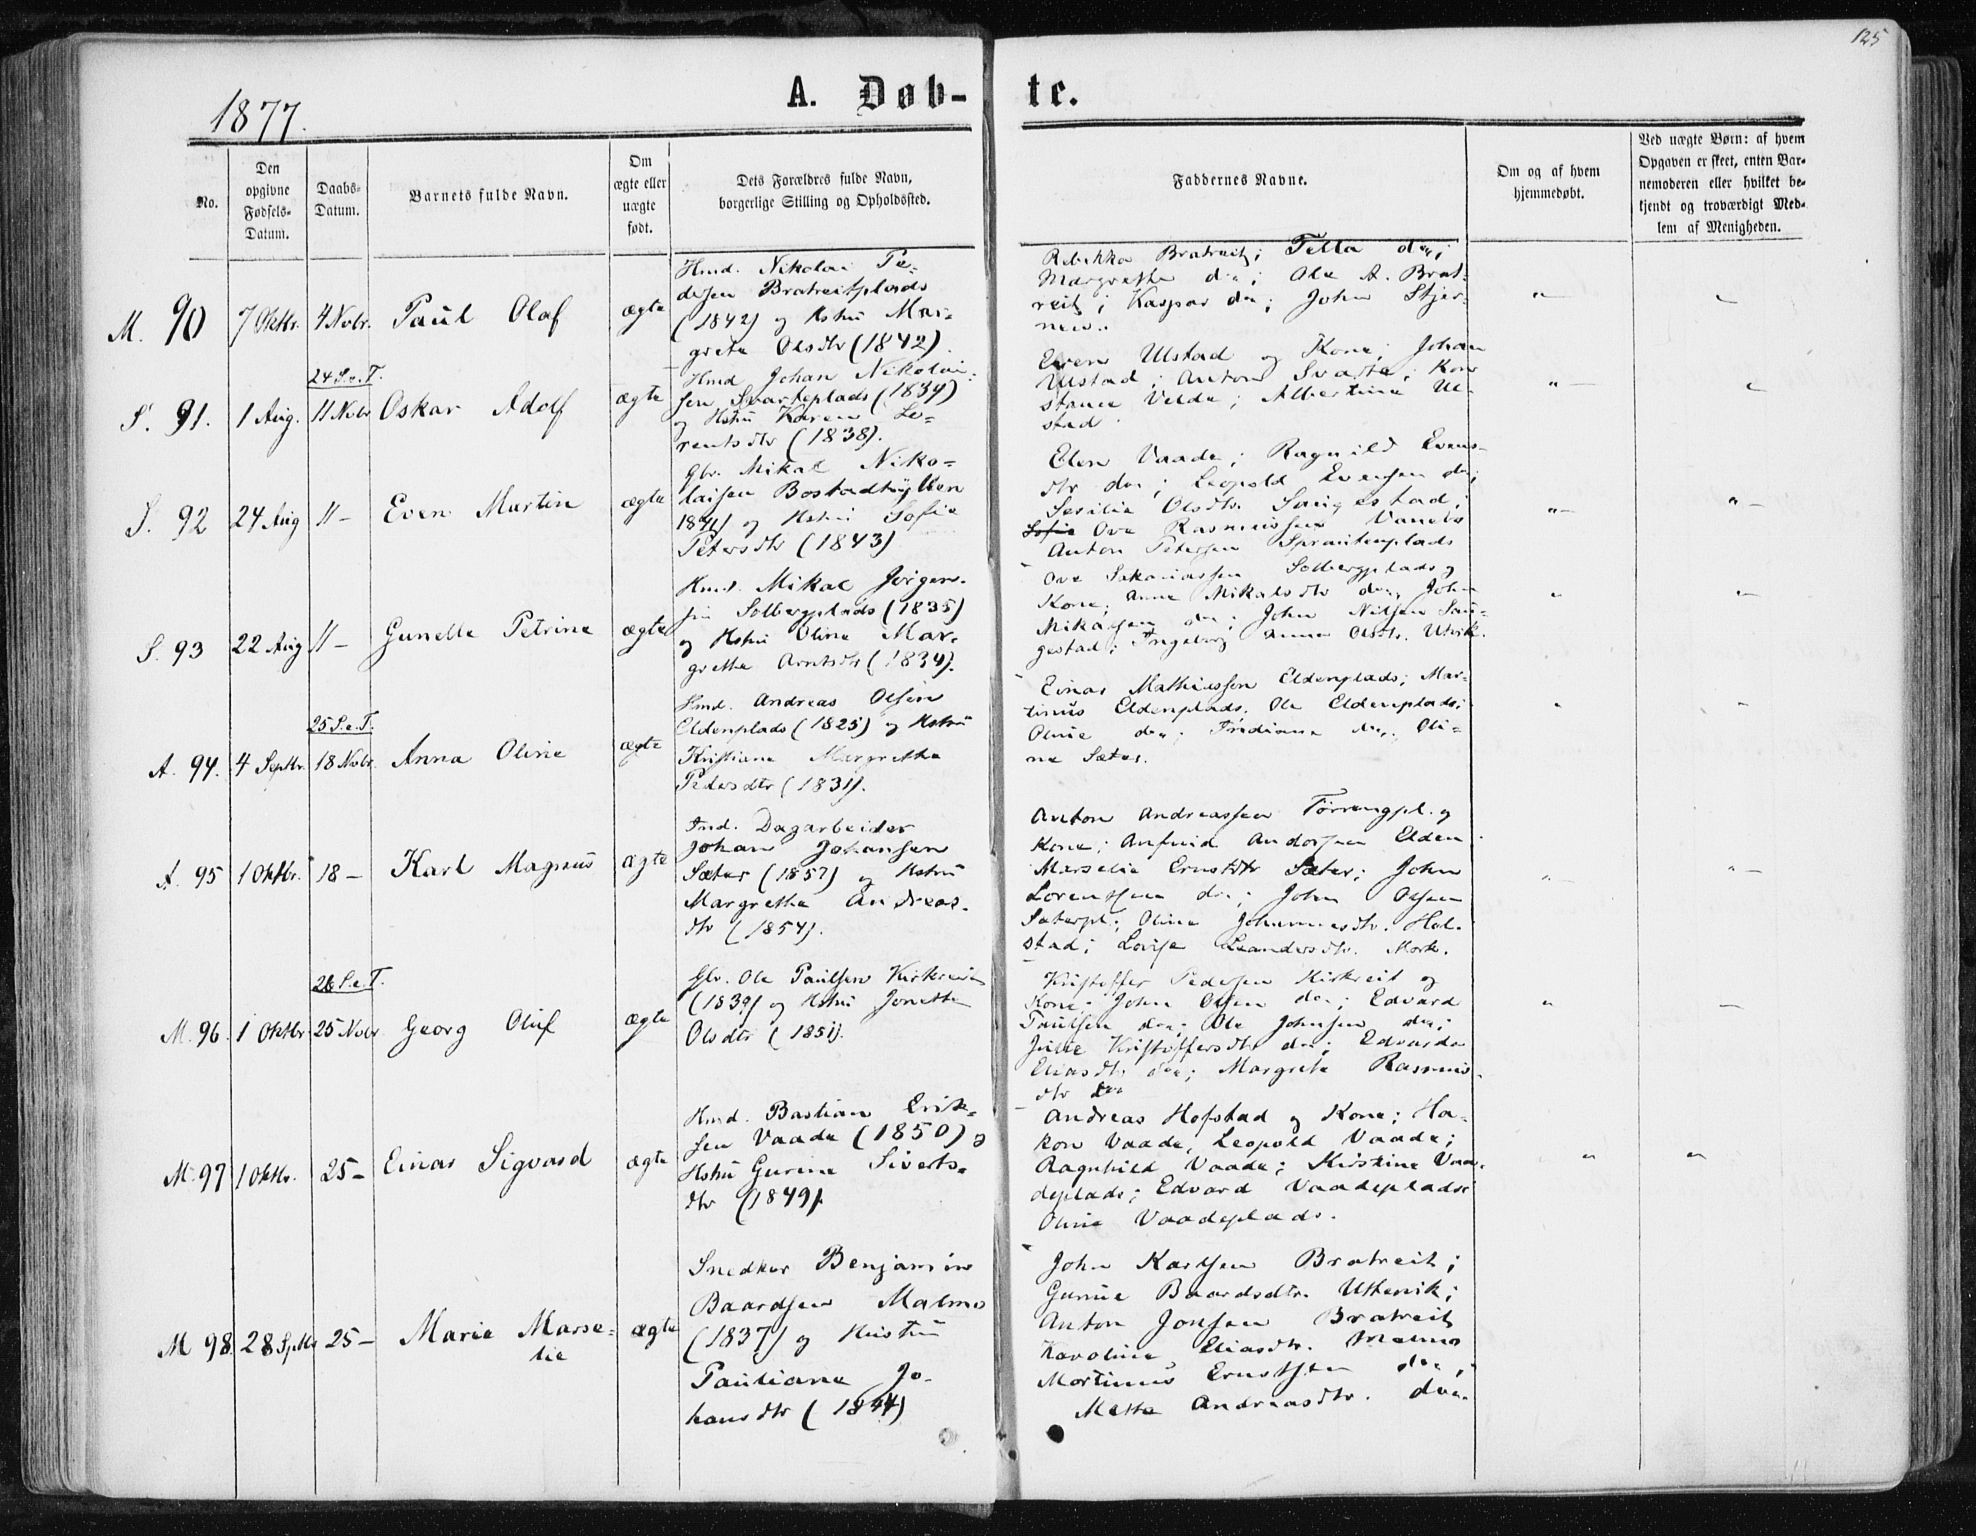 125
1877.
A. Døb-
te.
No.
Den
opgivne
Fødsels-
Datum.
Daabs-
Datum.
Barnets fulde Navn.
Om
ægte eller
uægte
født.
Dets Forældres fulde Navn,
borgerlige Stilling og Opholdssted.
Faddernes Navne.
Om og af hvem
hjemmedøbt.
Ved uægte Børn: af hvem
Opgaven er skeet, enten Bar-
nemoderen eller hvilket be-
kjendt og troværdigt Med-
lem af Menigheden.
M. 90
7 Oktbr.
4 Novbr.
Paul Olaf
ægte
Hmd. Nikolai Pe-
dersen Bratreitplads
(1842) og Hstru Mar-
grete Olsdtr (1842).
Rebekka Bratreit;
Margrethe do; Ole A. Brat-
reit; Kaspar do; John Stjer-
24 S.e.T.
S. 91.
1 Aug.
11 Novbr
Oskar Adolf
ægte
Hmd Johan Nikolai-
sen Svarteplads (1834)
og Hstru Karen Lo-
rentsdtr (1838).
Even Ulstad og Kone; Johan
Ulstad; Anton Svarte; Kon
stance Velde; Albertina Ul-
stad
S. 92
24 Aug
11 -
Even Martin
ægte
Gbr. Mikal Niko-
laisen Bostadhyllen
1841) og Hstru Sofie
Petersdtr (1843)
Elen Vaade; Ragnild Evens-
dtr do; Leopold Evensen do;
Sesilie Olsdtr. Saugestad;
Sofie Ove Rasmussen
Anton Petersen Sprautenplads
S. 93
22 Aug
11 -
Gunelle Petrine
ægte
Hmd. Mikal Jørgen-
sen Solbergplads (1835)
og Hstru Oline Mar-
grethe Arntsdtr (1834).
Ove Sakariassen Solbergplads og
Kone; Anne Mikalsdtr do; John
Mikalsen do; John Nilsen Sau-
gestad; Ingeborg Anna Olsdtr. Utvik.
25 S.e.T.
A. 94.
4 Septbr.
18 Novbr.
Anna Oline
ægte
Hmd. Andreas Olsen
Eldenplads (1825) og Hstru
Kristiane Margrethe
Pedersdtr (1831).
Einar Mathiassen Eldenplads; Mar-
tinus Eldenplads. Ole Eldenplads;
Oline do; Frediane do; Oli-
ne Sæter.
A. 95
1 Oktbr.
18 -
Karl Magnus
ægte
Ind. Dagarbeider
Johan Johansen
Sæter (1857) og Hstru
Margrethe Andreas-
dtr (1854).
Anton Andreassen Tørrengpl. og
Kone; Anfind Andorsen Elden
Marselie Ernstdtr Sæter; John
Lorentsen do; John Olsen
Sæterpl; Oline Johannesdtr. Hol-
stad; Lovise Leandersdtr. Mork.
26 S.e.T.
M. 96.
1 Oktbr
25 Novbr
Georg Oluf
ægte
Gbr. Ole Paulsen Kirkreit
(1839) og Hstru Jonetta
Olsdtr (1851).
Kristoffer Pedersen Kirkreit og
Kone. John Olsen do; Edvard
Paulsen do; Ole Johnsen do;
Julie Kristoffersdtr do; Edvarda
Eliasdtr do; Margreta Rasmus-
dtr do
M. 97
1 Oktbr.
25 -
Einar Sigvard
ægte
Hmd. Bastian Erik-
sen Vaade (1850) og
Hstru Gurine Siverts-
dtr (1849).
Andreas Hofstad og Kone; Ha-
kon Vaade, Leopold Vaade;
Ragnhild Vaade; Kirstine Vaa-
deplads; Edvard Vaadeplads;
Oline Vaadeplads.
M 98.
28 Septbr
25 -
Marie Marse-
lie
ægte
Snedker Benjamin
Baardsen Malmo
(1837) og Hustru
Pauliane Jo-
hansdtr (1844)
John Karlsen Bratreit;
Gurine Baardsdtr. Uttervik;
Anton Jonsen Bratreit
Karoline Eliasdtr. Malmo
Mortinus Ernstsen do;
Mette Andreasdtr. do.